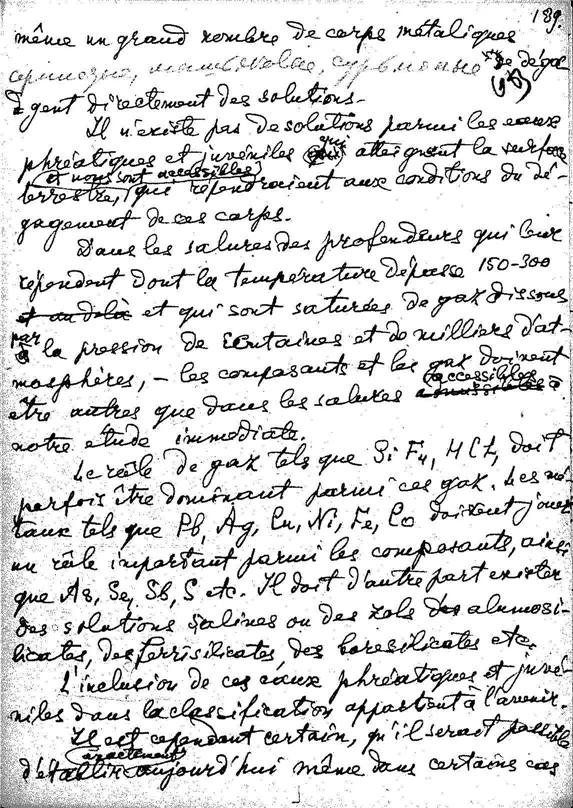 189.
même un grand nombre de corps métaliques
se dégagent directement des solutions.
Il n'existe pas de solutions parmi les eaux
phréatiques et juvéniles qui atteignent la surface
et nous sont accessibles
terrestre, qui répondraient aux conditions du dé-
gagement de ces corps.
Dans les salures des profondeurs qui leur
répondent dont la température dépasse 150-300
et au delà et qui sont saturées de gaz dissous
par la pression de centaines et de milliers d'at-
mosphères, – les composants et les gaz doivent
être autres que dans les salures accessibles à
notre étude immédiate.
Le rôle de gaz tels que SiF4, HCl, doit
parfois être dominant parmi ces gaz. Les mé-
taux tels que Pb, Ag, Cu, Ni, Fe, Co doivent jouer
un rôle important parmi les composants, ainsi
que As, Se, Sb, S etc. Il doit d'autre part exister
des solutions salines ou des zols des alumosi-
licates, des ferrisilicates, des boresilicates etc.
L'inclusion de ces eaux phréatiques et juvé-
niles dans la classification appartient à l'avenir.
Il est cependant certain, qu'il serait possible
exactement
d'établir aujourd'hui même dans certains cas